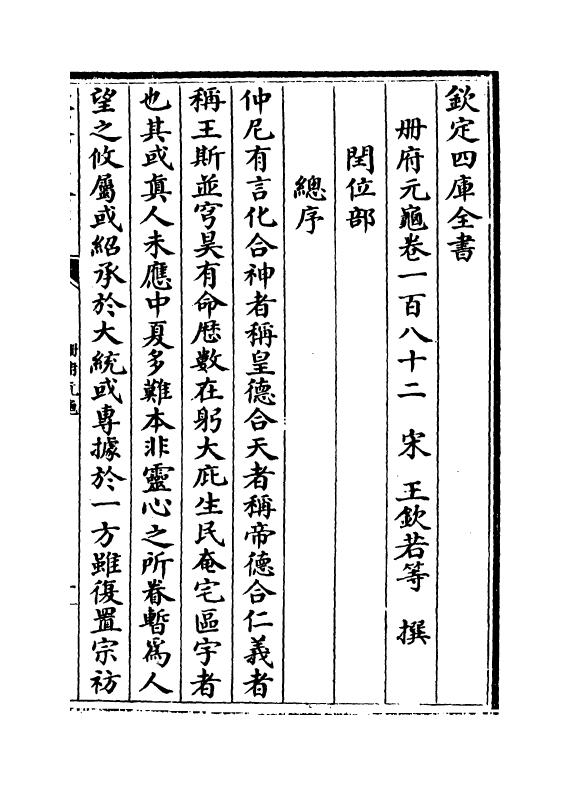 欽定四庫全書
冊府元龜卷一百八十二　宋　王欽若等　撰
閏位部
總序
仲尼有言化合神者稱皇德合天者稱帝德合仁義者
稱王斯並穹昊有命厯數在躬大庇生民奄宅區宇者
也其或真人未應中夏多難本非靈心之所眷暫為人
望之攸屬或紹承於大統或專據於一方雖復置宗祊